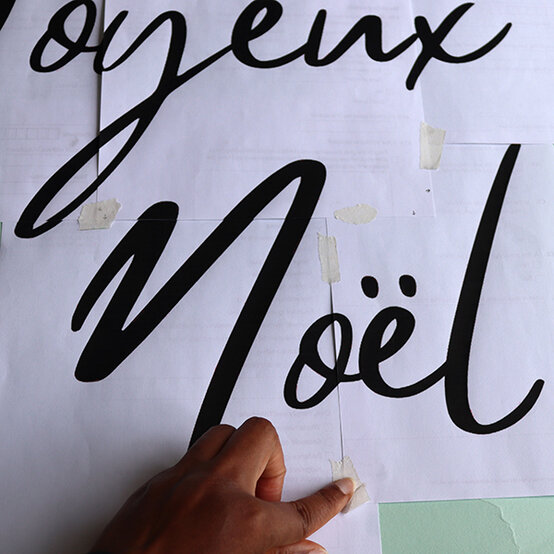 oyeux
Noël